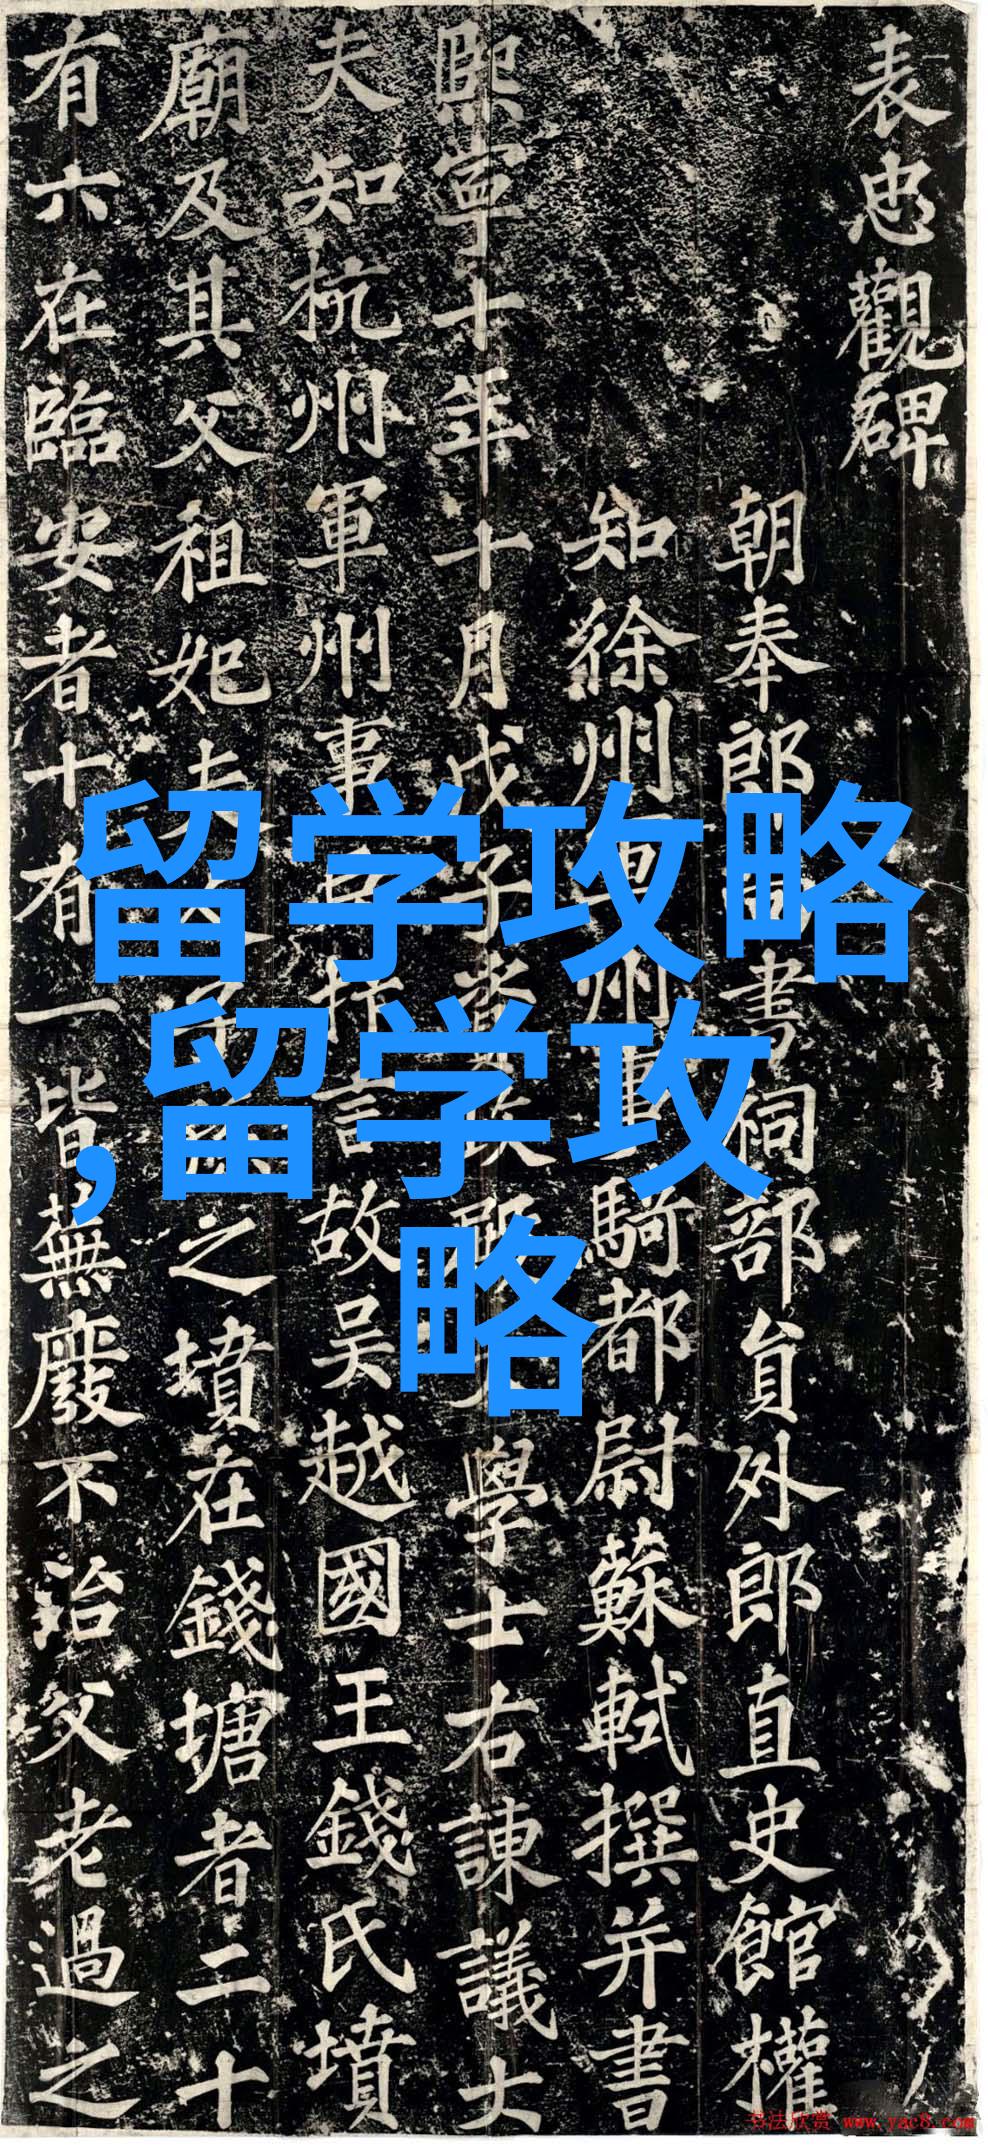 表忠觀碑
朝奉郎書祠部員外郎直史館權
知徐州軍州騎都尉蘇軾撰并書
熙寧十年十月戊子資政殿學士右諫議大
夫知杭州軍州事抃言故吴越國王錢氏墳
廟及其父祖妃夫之墳在錢塘者二十
有六在臨安者十有一皆蕪廢不治父老過之
留学攻略
,留学攻
略
书法欣赏 www.yac8.com